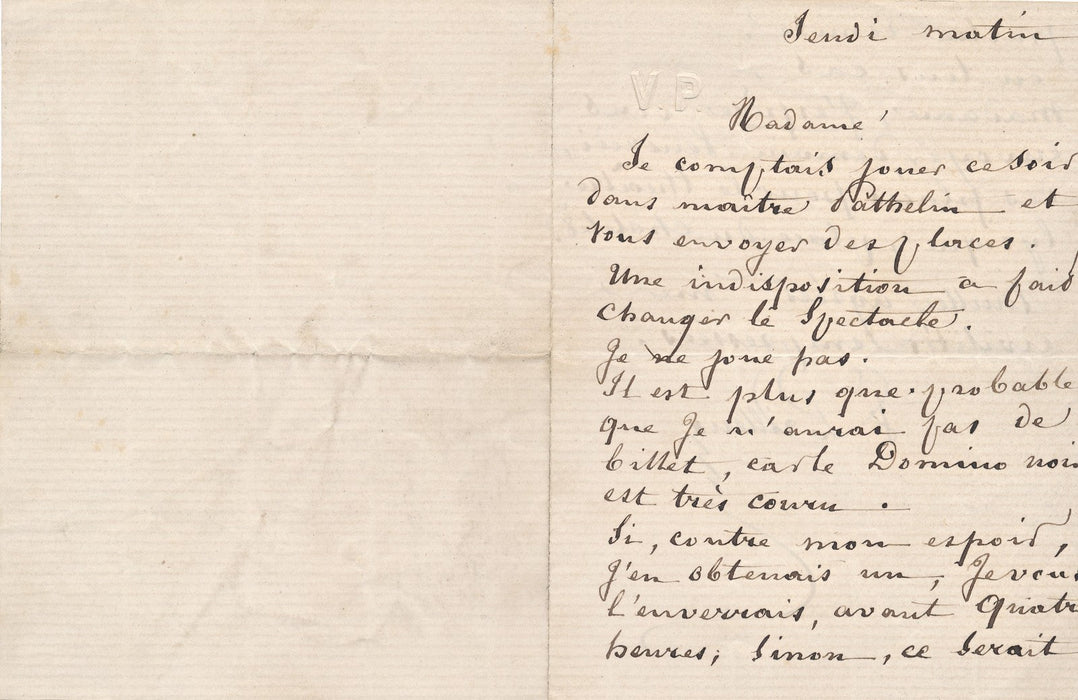 Jeudi matin
V.P.
Madame,
Je comptais jouer ce soir
dans maître Pâthelin et
vous envoyer des places.
Une indisposition a fait
changer le Spectacle.
Je ne joue pas.
Il est plus que probable
que je n'aurai pas de
billet, car le Domino noir
est très couru.
Si, contre mon espoir,
j'en obtenais un, Je vous
l'enverrais, avant Quatr
heures; Sinon, ce serait